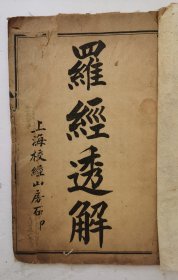 羅經透解
上海校經山房石印